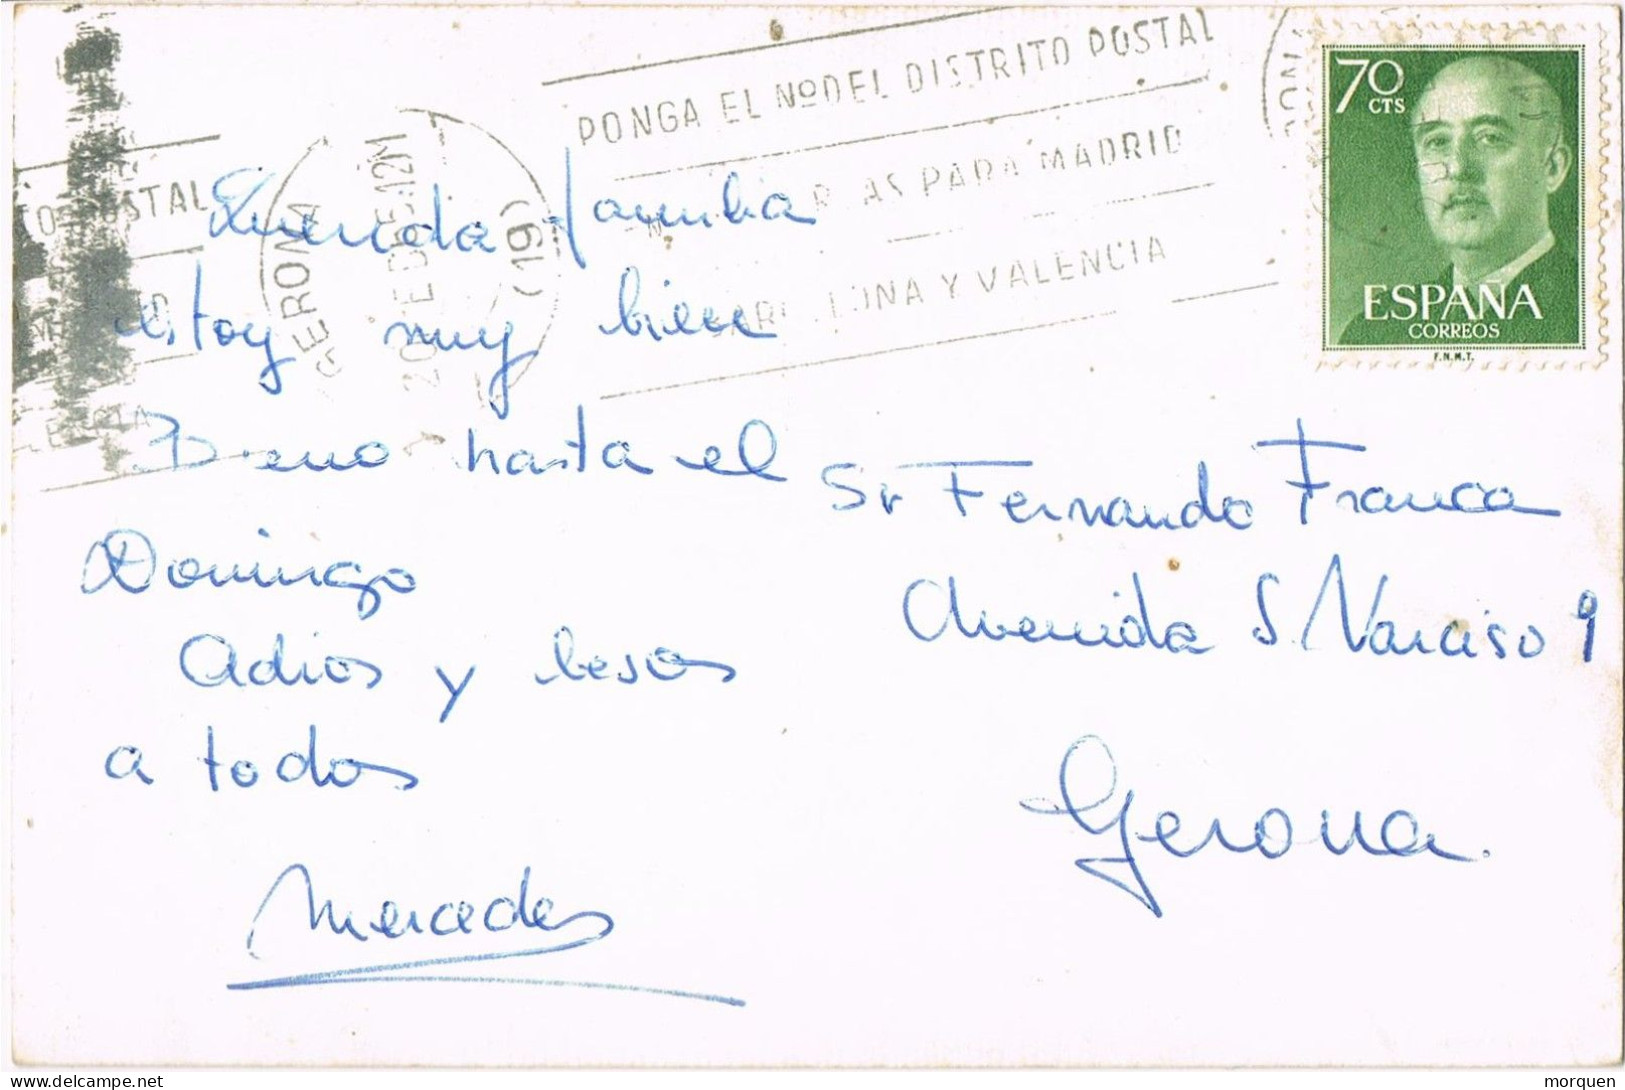 PONGA EL Nº DEL DISTRITO POSTAL
PARA MADRID
Y VALENCIA
GERONA
(19)
O POSTAL
70
CTS
ESPAÑA
CORREOS
F.N.M.T.
Querida familia
estoy muy bien
Bueno hasta el
Domingo
Adios y besos
a todos
Mercedes
Sr Fernando Franca
Avenida S. Narciso 9
Gerona.
morquen